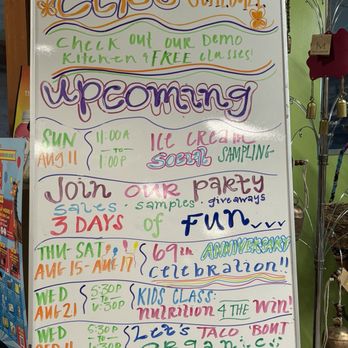 Let's
Check out our Demo
Kitchen & FREE classes!
upcoming
SUN 11:00A Ice Cream
AUG 11 -TO- Social Sampling
1:00P
Join our party
sales · samples · giveaways
3 DAYS of FUN
THU-SAT!!! 69th ANNIVERSARY
AUG 15-AUG 17 Celebration!!
WED 5:30P KIDS CLASS:
AUG 21 -TO- nutrition 4 the Win!
6:30P
WED 5:30P Let's TACO 'BOUT
SEP 11 -TO- Organics